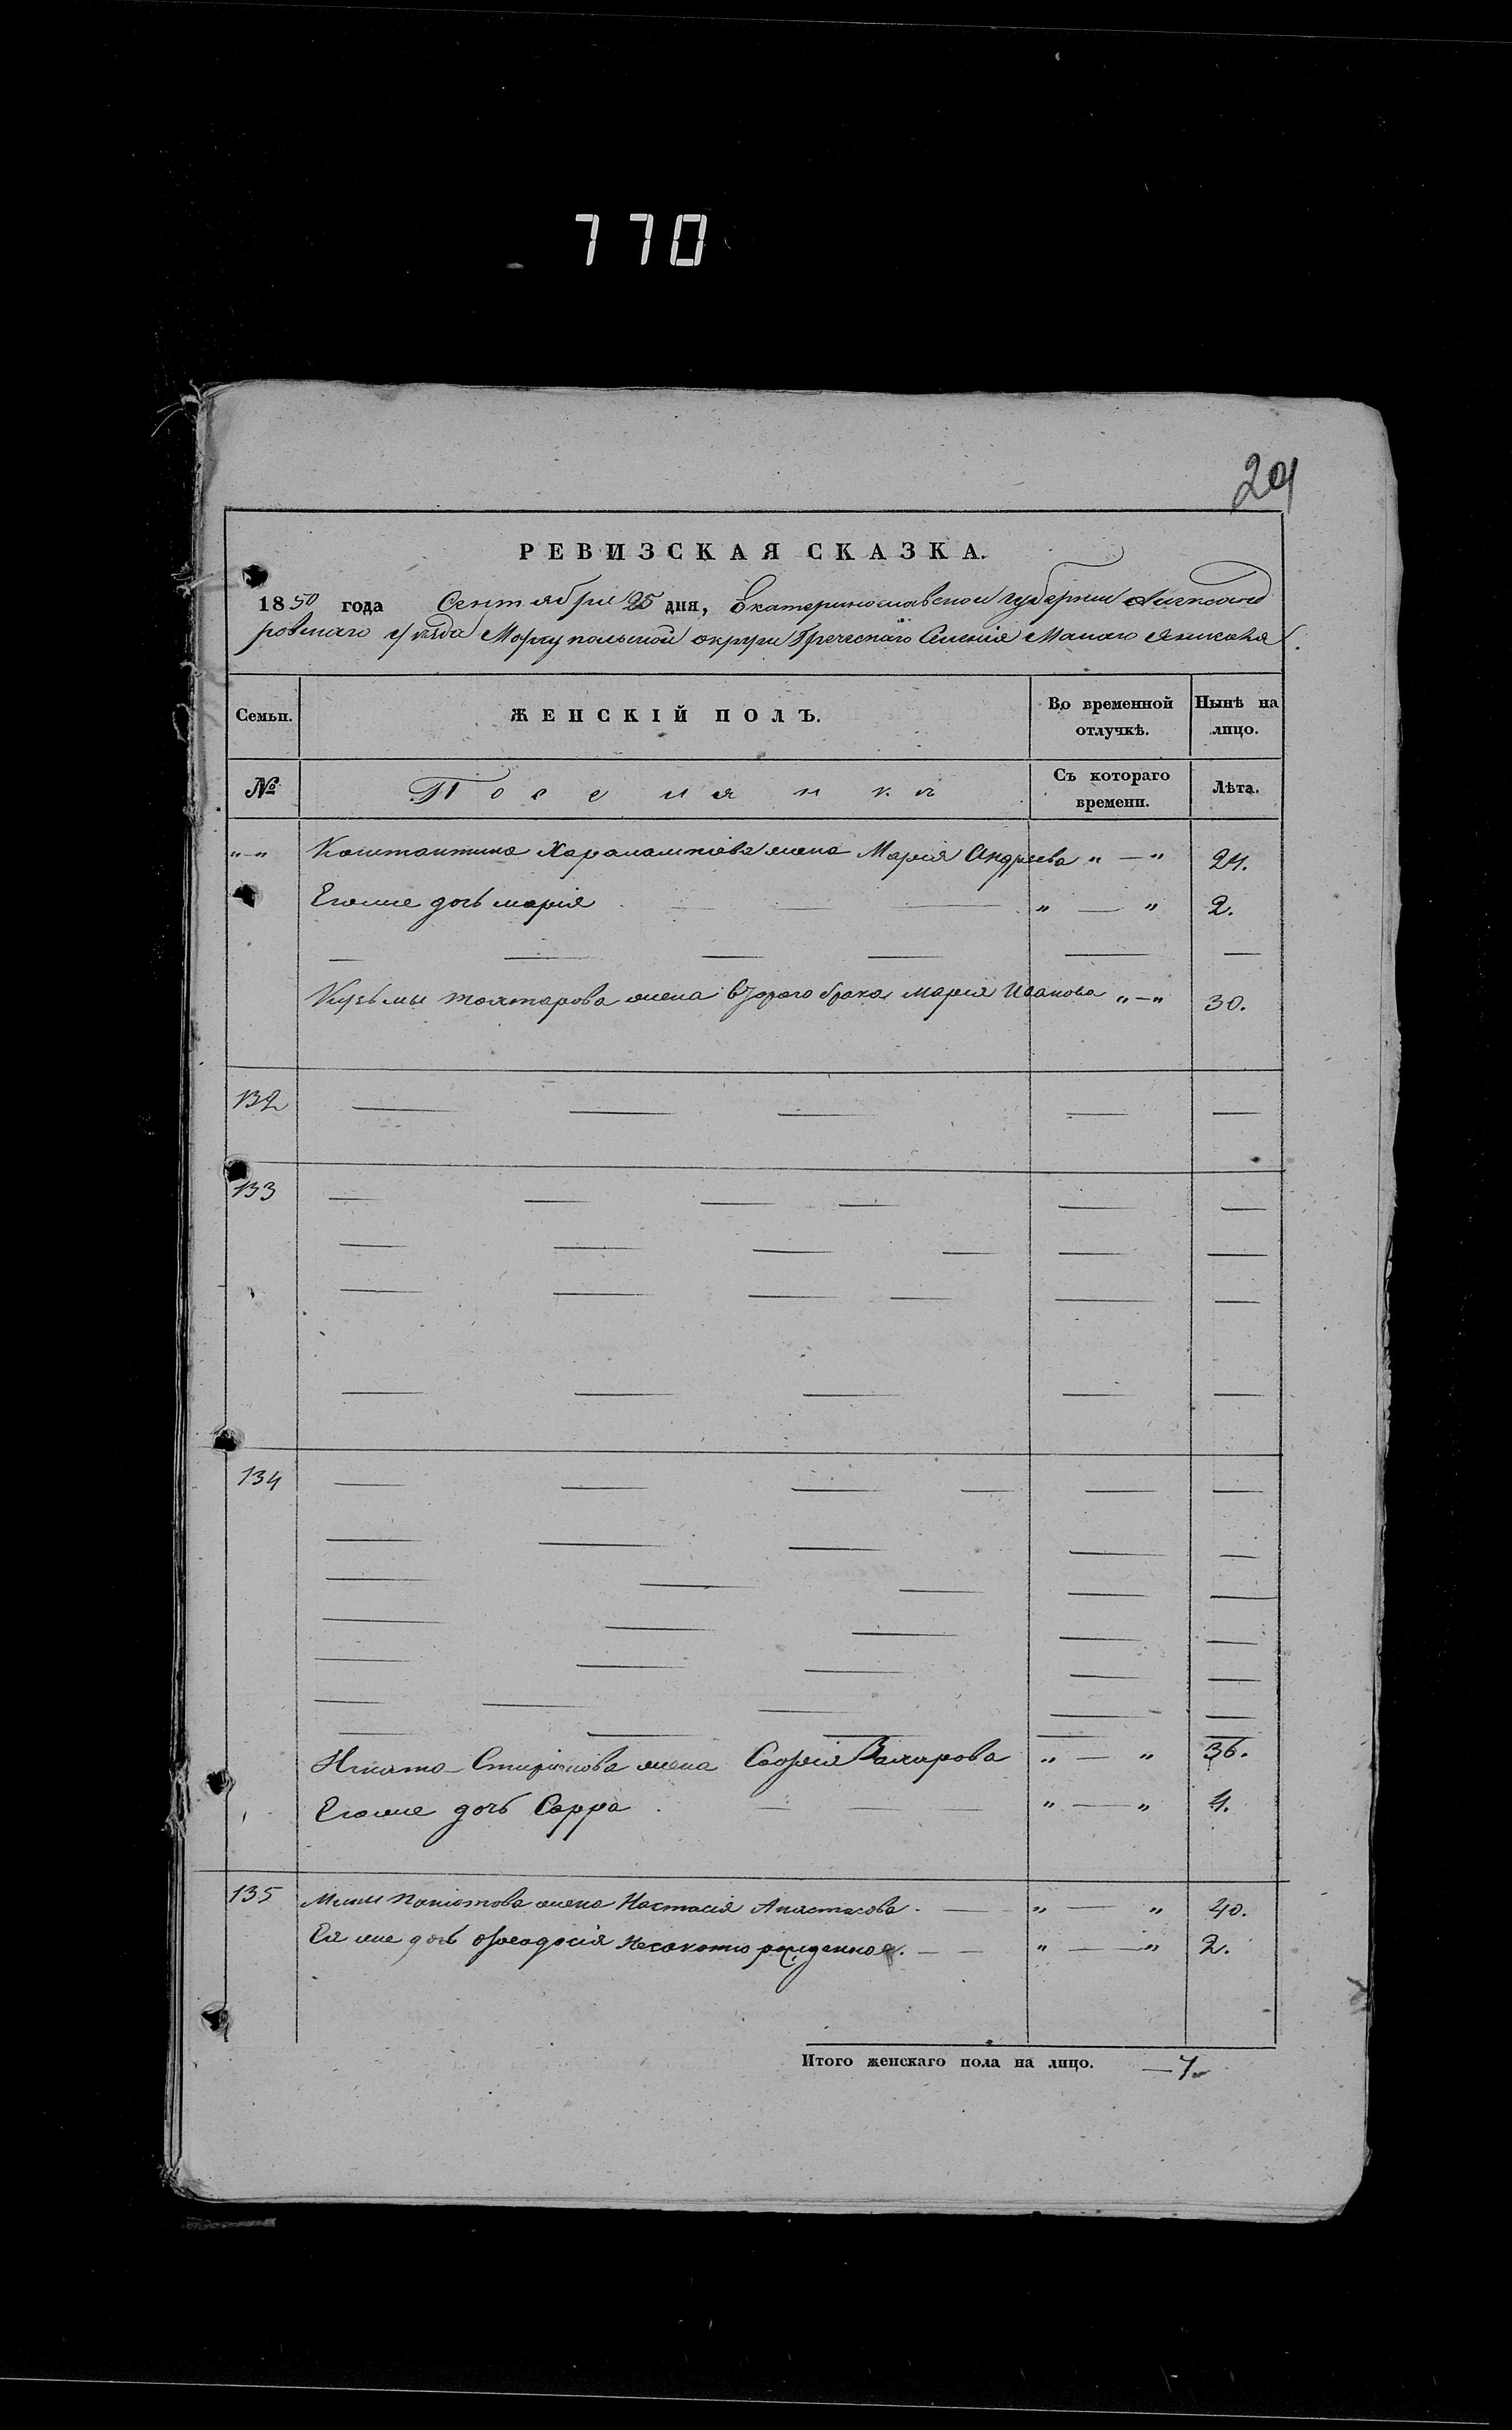 770
29
РЕВИЗСКАЯ СКАЗКА.
1850 года Сентября 25 дня, Екатеринославской губернии Александ
ровскаго уѣзда Мариупольской округи Греческаго Селенія Малаго Янисоля
Семьи. ЖЕНСКІЙ ПОЛЪ. Во временной отлучкѣ. Нынѣ на лицо.
№ Поселянки Съ котораго времени. Лѣта.
„–„ Константина Харалампіева жена Марія Андреева „ — „ 24.
Егоже дочь марія — — — „ — „ 2.
— — — — — —
Кузьмы жена втораго брака марія Иванова „–„ 30.
132 — — — — —
133 — — — — — —
— — — — — —
— — — — — —
— — — — —
134 — — — — — —
— — — — —
— — — — —
— — — — —
— — — — —
— — — — —
— — — — —
жена Софія „ — „ 36.
Егоже дочь Сарра — — „ — „ 4.
135 жена Настасія Анастасова. — „ — „ 40.
Ея же дочь Ѳеодосія незаконно рожденная. — — „ — „ 2.
Итого женскаго пола на лицо. — 7.